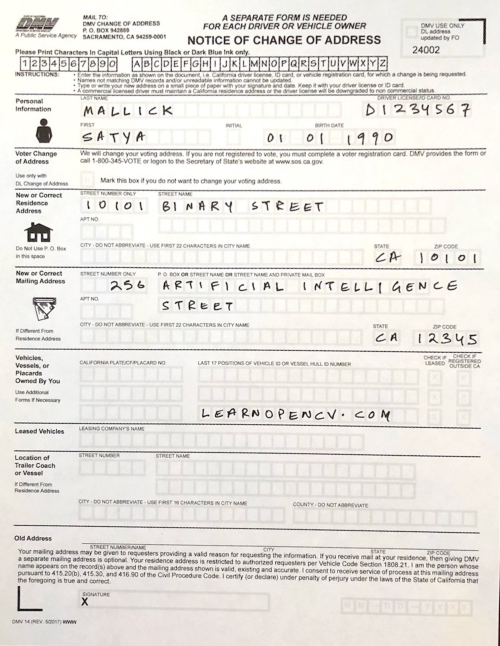 DMV
A Public Service Agency
MAIL TO:
DMV CHANGE OF ADDRESS
P. O. BOX 942859
SACRAMENTO, CA 94259-0001
A SEPARATE FORM IS NEEDED
FOR EACH DRIVER OR VEHICLE OWNER
NOTICE OF CHANGE OF ADDRESS
DMV USE ONLY
DL address
updated by FO
24002
Please Print Characters In Capital Letters Using Black or Dark Blue Ink only.
1 2 3 4 5 6 7 8 9 0 A B C D E F G H I J K L M N O P Q R S T U V W X Y Z
INSTRUCTIONS:
• Enter the information as shown on the document, i.e. California driver license, ID card, or vehicle registration card, for which a change is being requested.
• Names not matching DMV records and/or unreadable information cannot be updated.
• Type or write your new address on a small piece of paper with your signature and date. Keep it with your driver license or ID card.
• A commercial licensed driver must maintain a California residence address or the driver license will be downgraded to non commercial status.
Personal
Information
LAST NAME
DRIVER LICENSE/ID CARD NO.
MALLICK D1234567
FIRST INITIAL BIRTH DATE
SATYA 01 01 1990
Voter Change
of Address
We will change your voting address. If you are not registered to vote, you must complete a voter registration card. DMV provides the form or
call 1-800-345-VOTE or logon to the Secretary of State's website at www.sos.ca.gov.
Use only with
DL Change of Address
Mark this box if you do not want to change your voting address.
New or Correct
Residence
Address
STREET NUMBER ONLY STREET NAME
10101 BINARY STREET
APT NO.
Do Not Use P. O. Box
in this space
CITY - DO NOT ABBREVIATE - USE FIRST 22 CHARACTERS IN CITY NAME STATE ZIP CODE
CA 10101
New or Correct
Mailing Address
STREET NUMBER ONLY P. O. BOX OR STREET NAME OR STREET NAME AND PRIVATE MAIL BOX
256 ARTIFICIAL INTELLIGENCE
APT NO.
STREET
If Different From
Residence Address
CITY - DO NOT ABBREVIATE - USE FIRST 22 CHARACTERS IN CITY NAME STATE ZIP CODE
CA 12345
Vehicles,
Vessels, or
Placards
Owned By You
CALIFORNIA PLATE/CF/PLACARD NO. LAST 17 POSITIONS OF VEHICLE ID OR VESSEL HULL ID NUMBER
CHECK IF
LEASED
CHECK IF
REGISTERED
OUTSIDE CA
Use Additional
Forms If Necessary
LEARNOPENCV.COM
Leased Vehicles
LEASING COMPANY'S NAME
Location of
Trailer Coach
or Vessel
STREET NUMBER STREET NAME
If Different From
Residence Address
CITY - DO NOT ABBREVIATE - USE FIRST 16 CHARACTERS IN CITY NAME COUNTY - DO NOT ABBREVIATE
Old Address
STREET NUMBER/NAME CITY STATE ZIP CODE
Your mailing address may be given to requesters providing a valid reason for requesting the information. If you receive mail at your residence, then giving DMV
a separate mailing address is optional. Your residence address is restricted to authorized requesters per Vehicle Code Section 1808.21. I am the person whose
name appears on the record(s) above and the mailing address shown is valid, existing and accurate. I consent to receive service of process at this mailing address
pursuant to 415.20(b), 415.30, and 416.90 of the Civil Procedure Code. I certify (or declare) under penalty of perjury under the laws of the State of California that
the foregoing is true and correct.
SIGNATURE
X
DMV 14 (REV. 6/2017) WWW